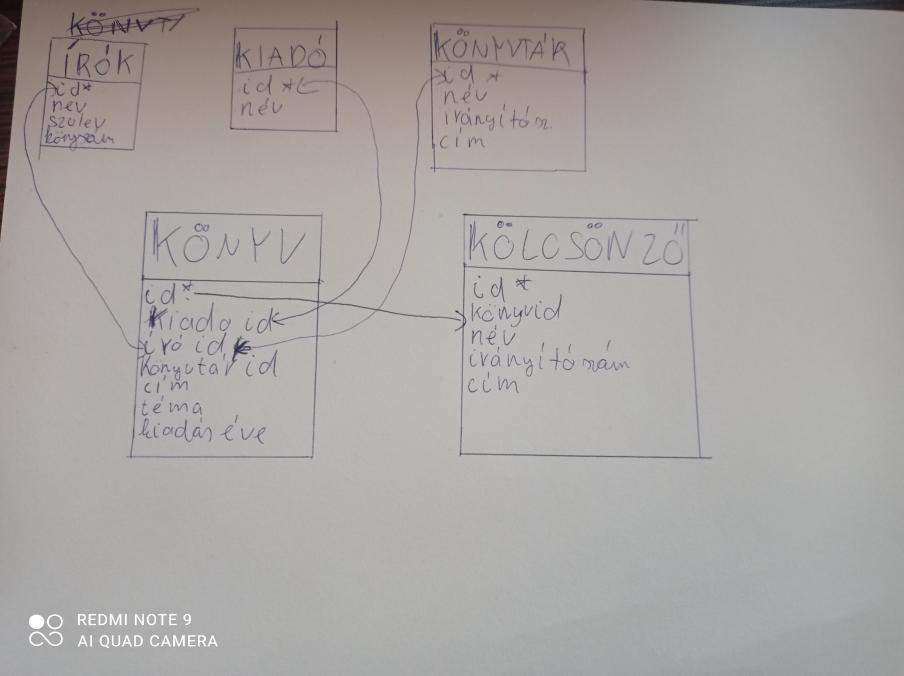 KÖNYVT
ÍRÓK
id*
nev
szulev
könyszám
KIADÓ
id *
név
KÖNYVTÁR
id *
név
irányítósz.
cím
KÖNYV
id*
Kiado id
író id
könyvtár id
cím
téma
kiadás éve
KÖLCSÖNZŐ
id *
könyvid
név
irányítószám
cím
REDMI NOTE 9
AI QUAD CAMERA